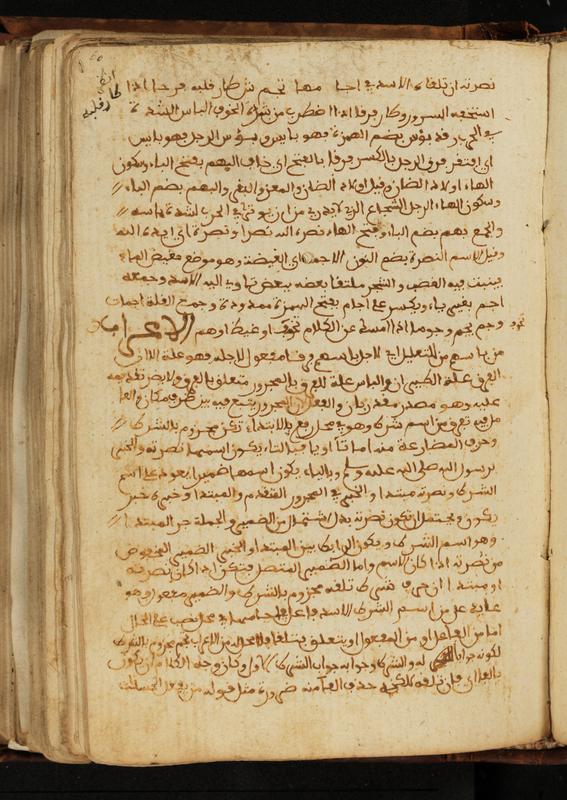 نصرته ان تلقاه الاسد في اجامها تجم ش طار قلبه فرحا اذا
استخفه السرور وطار فرقا اذا اضطرب من شدة الخوف الباس الشدة
في الحرب وقد بؤس بضم الهمزة فهو بئيس وبؤس الرجل فهو بايس
اي افتقر فرق الرجل بالكسر فرقا بالفتح اي خاف البهم بفتح الباء وسكون
الهاء اولاد الضان وقيل اولاد الضان والمعز والبقر والبهم بضم الباء
وسكون الهاء الرجل الشجاع الذي لا يدرى من اين يؤتى في الحرب لشدة باسه
والجمع بهم بضم الباء وفتح الهاء نصره الله نصرا ونصرة اي ايده الله
وقيل الاسم النصرة بضم النون الاجمة اي الغيضة وهو موضع مغيض الماء
ينبت فيه القصب والشجر ملتفا بعضه ببعض تاوي اليه الاسد وجمعه
اجم بغير ياء ويكسر على اجام بفتح الهمزة ممدودة وجمع القلة اجمات
وجم يجم وجوما اذا امسك عن الكلام تخوف او غيظ او هم الاعراب
من باسهم من للتعليل اي لاجل باسهم فرقا مفعول لاجله فهو علة
الفرق علة الطيران والباس علة للفرق فالمجرور متعلق بالفرق ولا يضر تقديمه
عليه وهو مصدر مقدر بان والفعل لان المجرور يتسع فيه بين ظرف مكان والعامل
فيه تفرق من اسم شرط وهو في محل رفع بالابتداء تكن مجزوم بالشرط
وحرف المضارعة منه اما تا او يا فبالتاء يكون اسمها نصرته والخبر
برسول الله صلى الله عليه وسلم وبالياء يكون اسمها ضميرا يعود على اسم
الشرط ونصرته مبتدا والخبر في المجرور المتقدم والمبتدا وخبره خبر
يكون ويحتمل ان تكون نصرته بدل اشتمال من الضمير والجملة خبر المبتدا
وهو اسم الشرط ويكون الرابط بين المبتدا والخبر الضمير المخفوض
من نصرته اذا كان الاسم واما الضمير المتصل فيكن اذا كان نصرته
او مبتدا ان حرف شرط تلقه مجزوم بالشرط والضمير مفعول وهو
عايد على من اسم الشرط الاسد فاعل في اجامها في محل نصب على الحال
اما من الفاعل او من المفعول او يتعلق بتلقه ولا محل له من الاعراب تجم مجزوم بالشرط
لكونه جوابا له والشرط وجوابه جواب الشرط الاول وكان وجه الكلام ان يكون
بالفاء اي فان تلقه لكنه حذف الفاء منه ضرورة مثل قوله من يفعل الحسنات